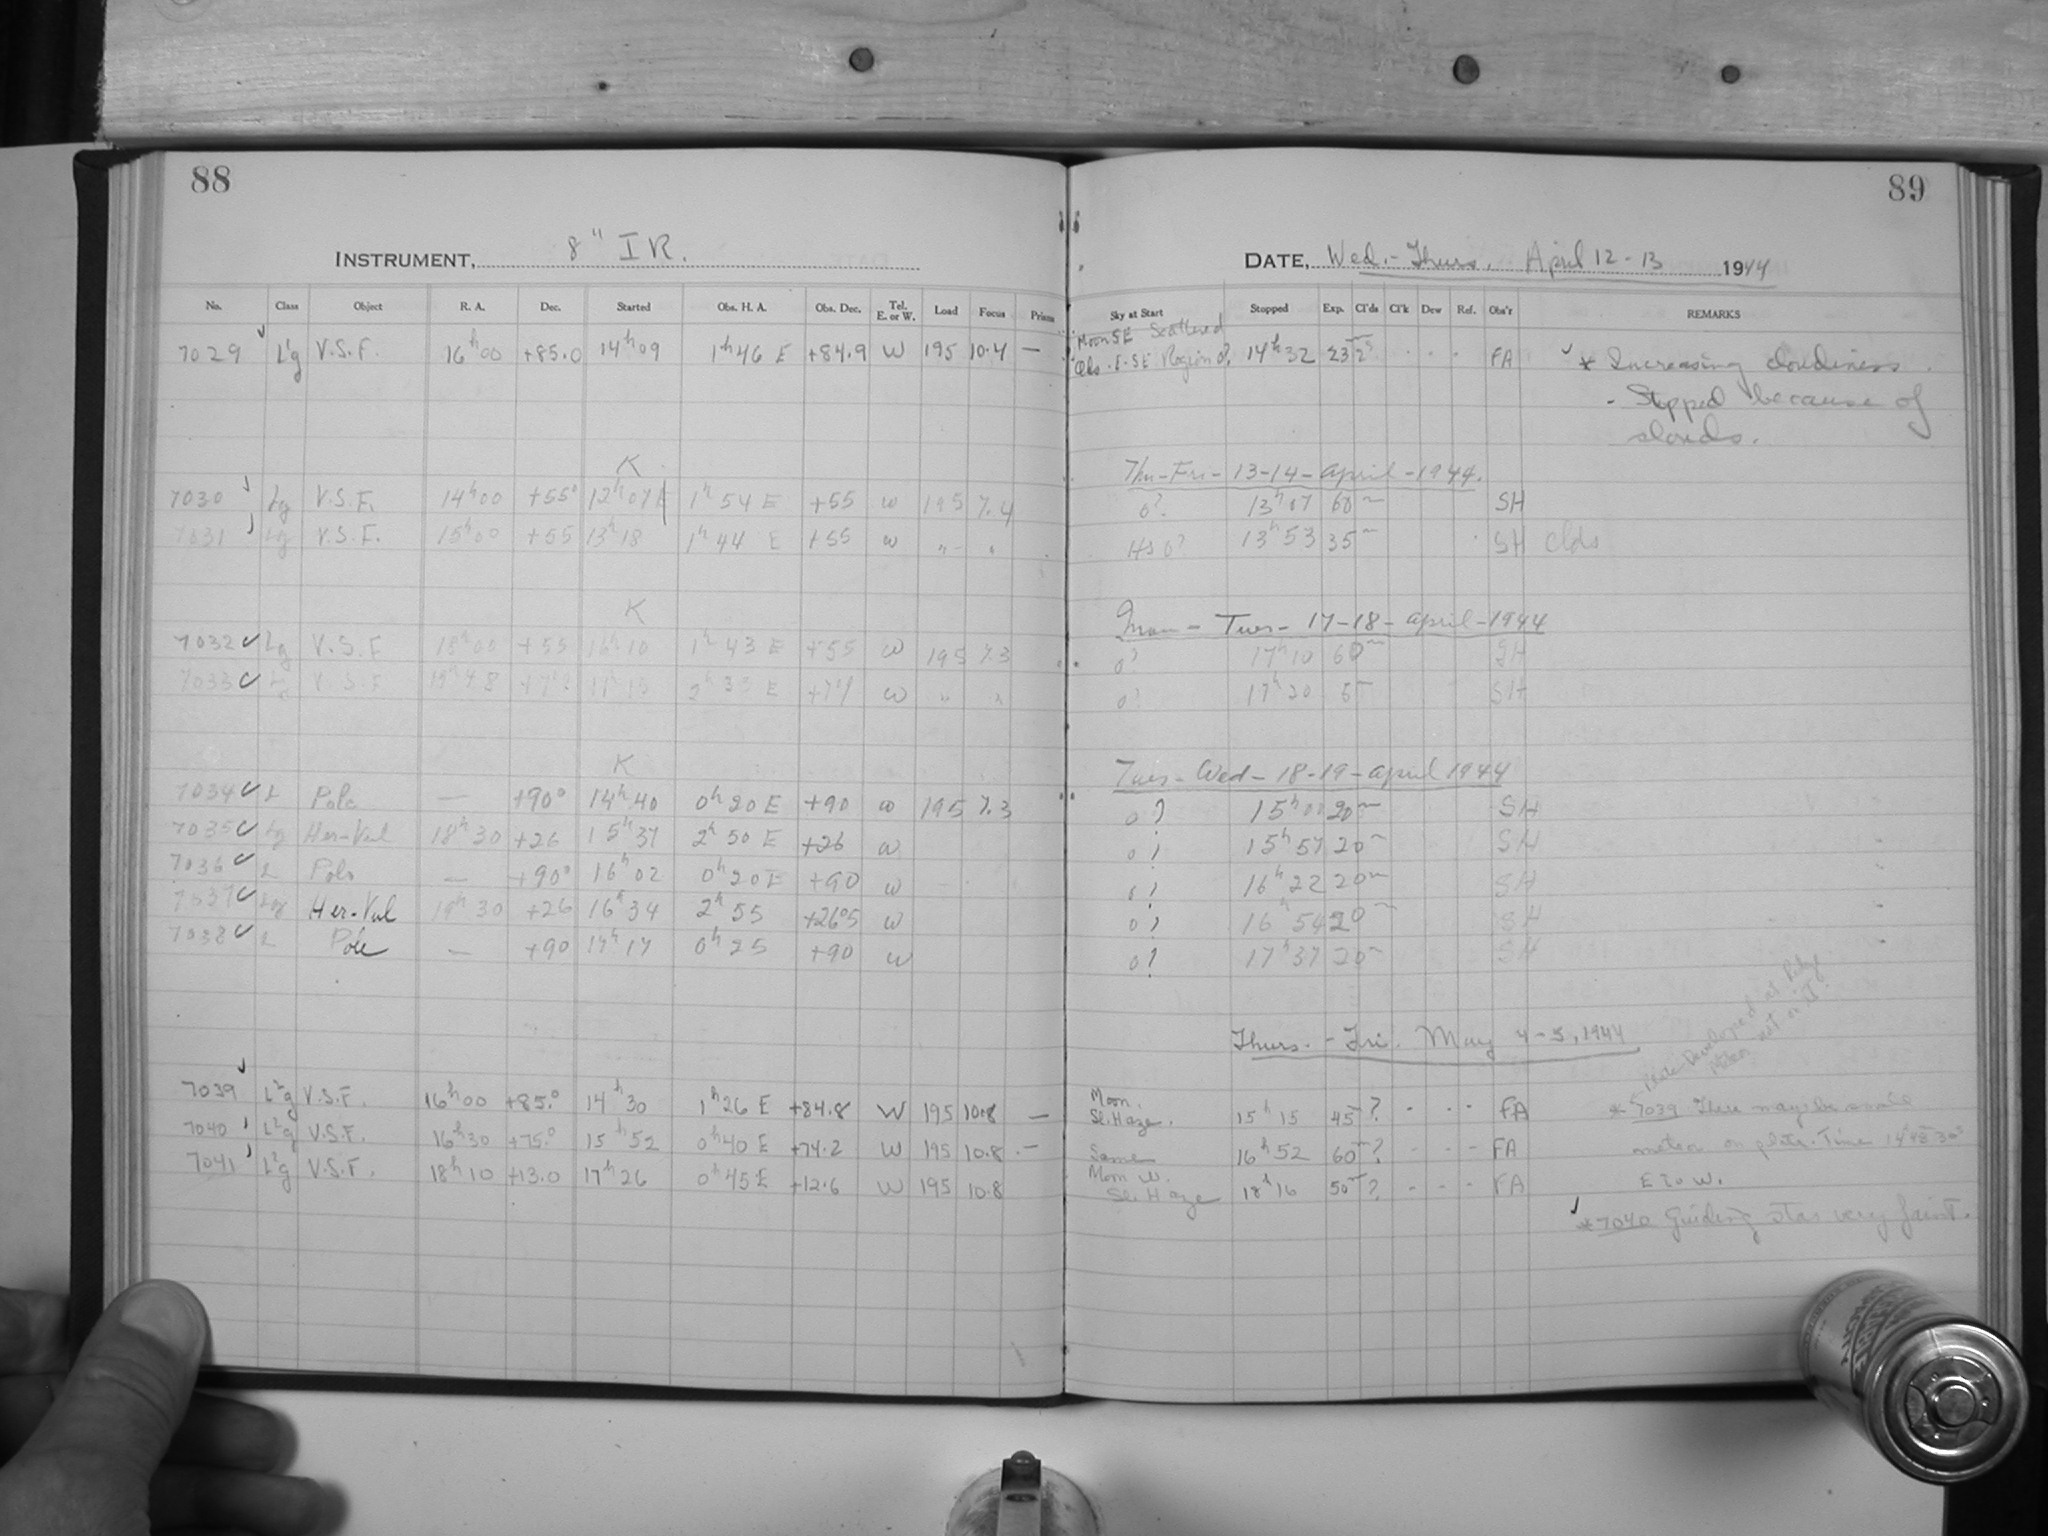 88
89
INSTRUMENT, 8" IR.
DATE, Wed.-Thurs. April 12-13 1944
No. Class Object R. A. Dec. Started Obs. H. A. Obs. Dec. Tel. E. or W. Load Focus Prisms Sky at Start Stopped Exp. Cl'ds Cl'k Dew Ref. Obs'r REMARKS
7029 L'g V.S.F. 16h00 +85.0 14h09 1h46 E +84.9 W 195 10.4 — Moon SE Scattered
E-SE Region 14h32 23 FA * Increasing cloudiness.
- Stopped because of
clouds.
K Thu-Fri-13-14-april-1944.
7030 Lg V.S.F. 14h00 +55° 12h07 1h54 E +55 w 195 7.4 0? 13h07 60m SH
7031 Lg V.S.F. 15h00 +55 13h18 1h44 E +55 w " " 0? 13h53 35m SH Clds
K Mon-Tues-17-18-april-1944
7032 Lg V.S.F 18h00 +55 16h10 1h43 E +55 w 195 7.3 0? 17h10 60m SH
7033 V.S.F 17h15 2h33 E w " " 0? 17h20 5m SH
K Tues-Wed-18-19-april 1944
7034 L Pole — +90° 14h40 0h20 E +90 w 195 7.3 0? 15h00 20m SH
7035 Lg Her-Vul 18h30 +26 15h37 2h50 E +26 w 0? 15h57 20m SH
7036 L Pole — +90° 16h02 0h20 E +90 w 0? 16h22 20m SH
7037 Lg Her-Vul 19h30 +26 16h34 2h55 +26°5 w 0? 16h54 20m SH
7038 L Pole — +90 17h17 0h25 +90 w 0? 17h37 20m SH
Thurs.-Fri. May 4-5, 1944
Plate Developed
7039 L²g V.S.F. 16h00 +85.° 14h30 1h26 E +84.8 W 195 10.8 — Moon.
Sl. Haze. 15h15 45m? - - - FA * 7039 There may be
7040 L²g V.S.F. 16h30 +75.° 15h52 0h40 E +74.2 W 195 10.8 — Same 16h52 60m? - - - FA meteor on plate. Time 14h48m30s
7041 L²g V.S.F. 18h10 +13.0 17h26 0h45 E +12.6 W 195 10.8 Moon W.
Sl. Haze 18h16 50m? - - - FA E to W.
*7040 Guiding star very faint.